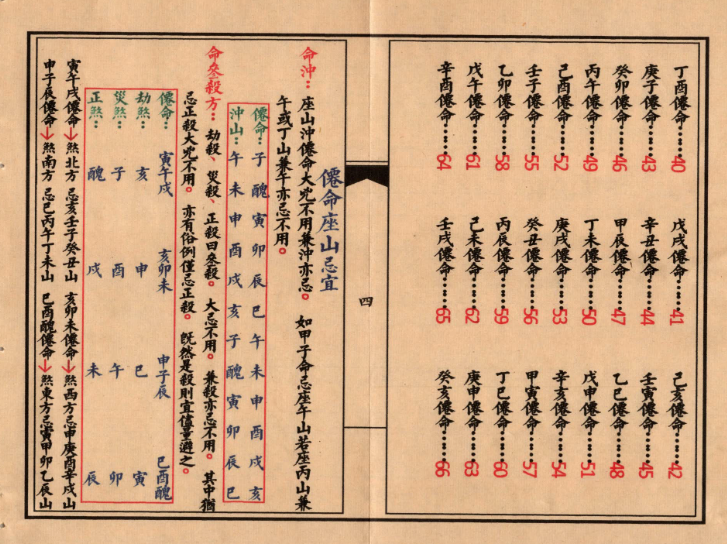 丁酉僊命……40 戊戌僊命……41 己亥僊命……42
庚子僊命……43 辛丑僊命……44 壬寅僊命……45
癸卯僊命……46 甲辰僊命……47 乙巳僊命……48
丙午僊命……49 丁未僊命……50 戊申僊命……51
己酉僊命……52 庚戌僊命……53 辛亥僊命……54
壬子僊命……55 癸丑僊命……56 甲寅僊命……57
乙卯僊命……58 丙辰僊命……59 丁巳僊命……60
戊午僊命……61 己未僊命……62 庚申僊命……63
辛酉僊命……64 壬戌僊命……65 癸亥僊命……66
四
僊命座山忌宜
命沖：座山沖僊命大兇不用兼沖亦忌。 如甲子命忌座午山若座丙山兼
午或丁山兼午亦忌不用。
僊命：子 醜 寅 卯 辰 巳 午 未 申 酉 戌 亥
沖山：午 未 申 酉 戌 亥 子 醜 寅 卯 辰 巳
命叄殺方：劫殺、災殺、正殺曰叄殺。 大忌不用。 兼殺亦忌不用。 其中猶
忌正殺大兇不用。 亦有俗例僅忌正殺。 既然是殺則宜量避之。
僊命：寅午戌 亥卯未 申子辰 巳酉醜
劫煞：亥 申 巳 寅
災煞：子 酉 午 卯
正煞：醜 戌 未 辰
寅午戌僊命→煞北方 忌亥壬子癸丑山 亥卯未僊命→煞西方忌申庚酉辛戌山
申子辰僊命→煞南方 忌巳丙午丁未山 巳酉醜僊命→煞東方忌寅甲卯乙辰山